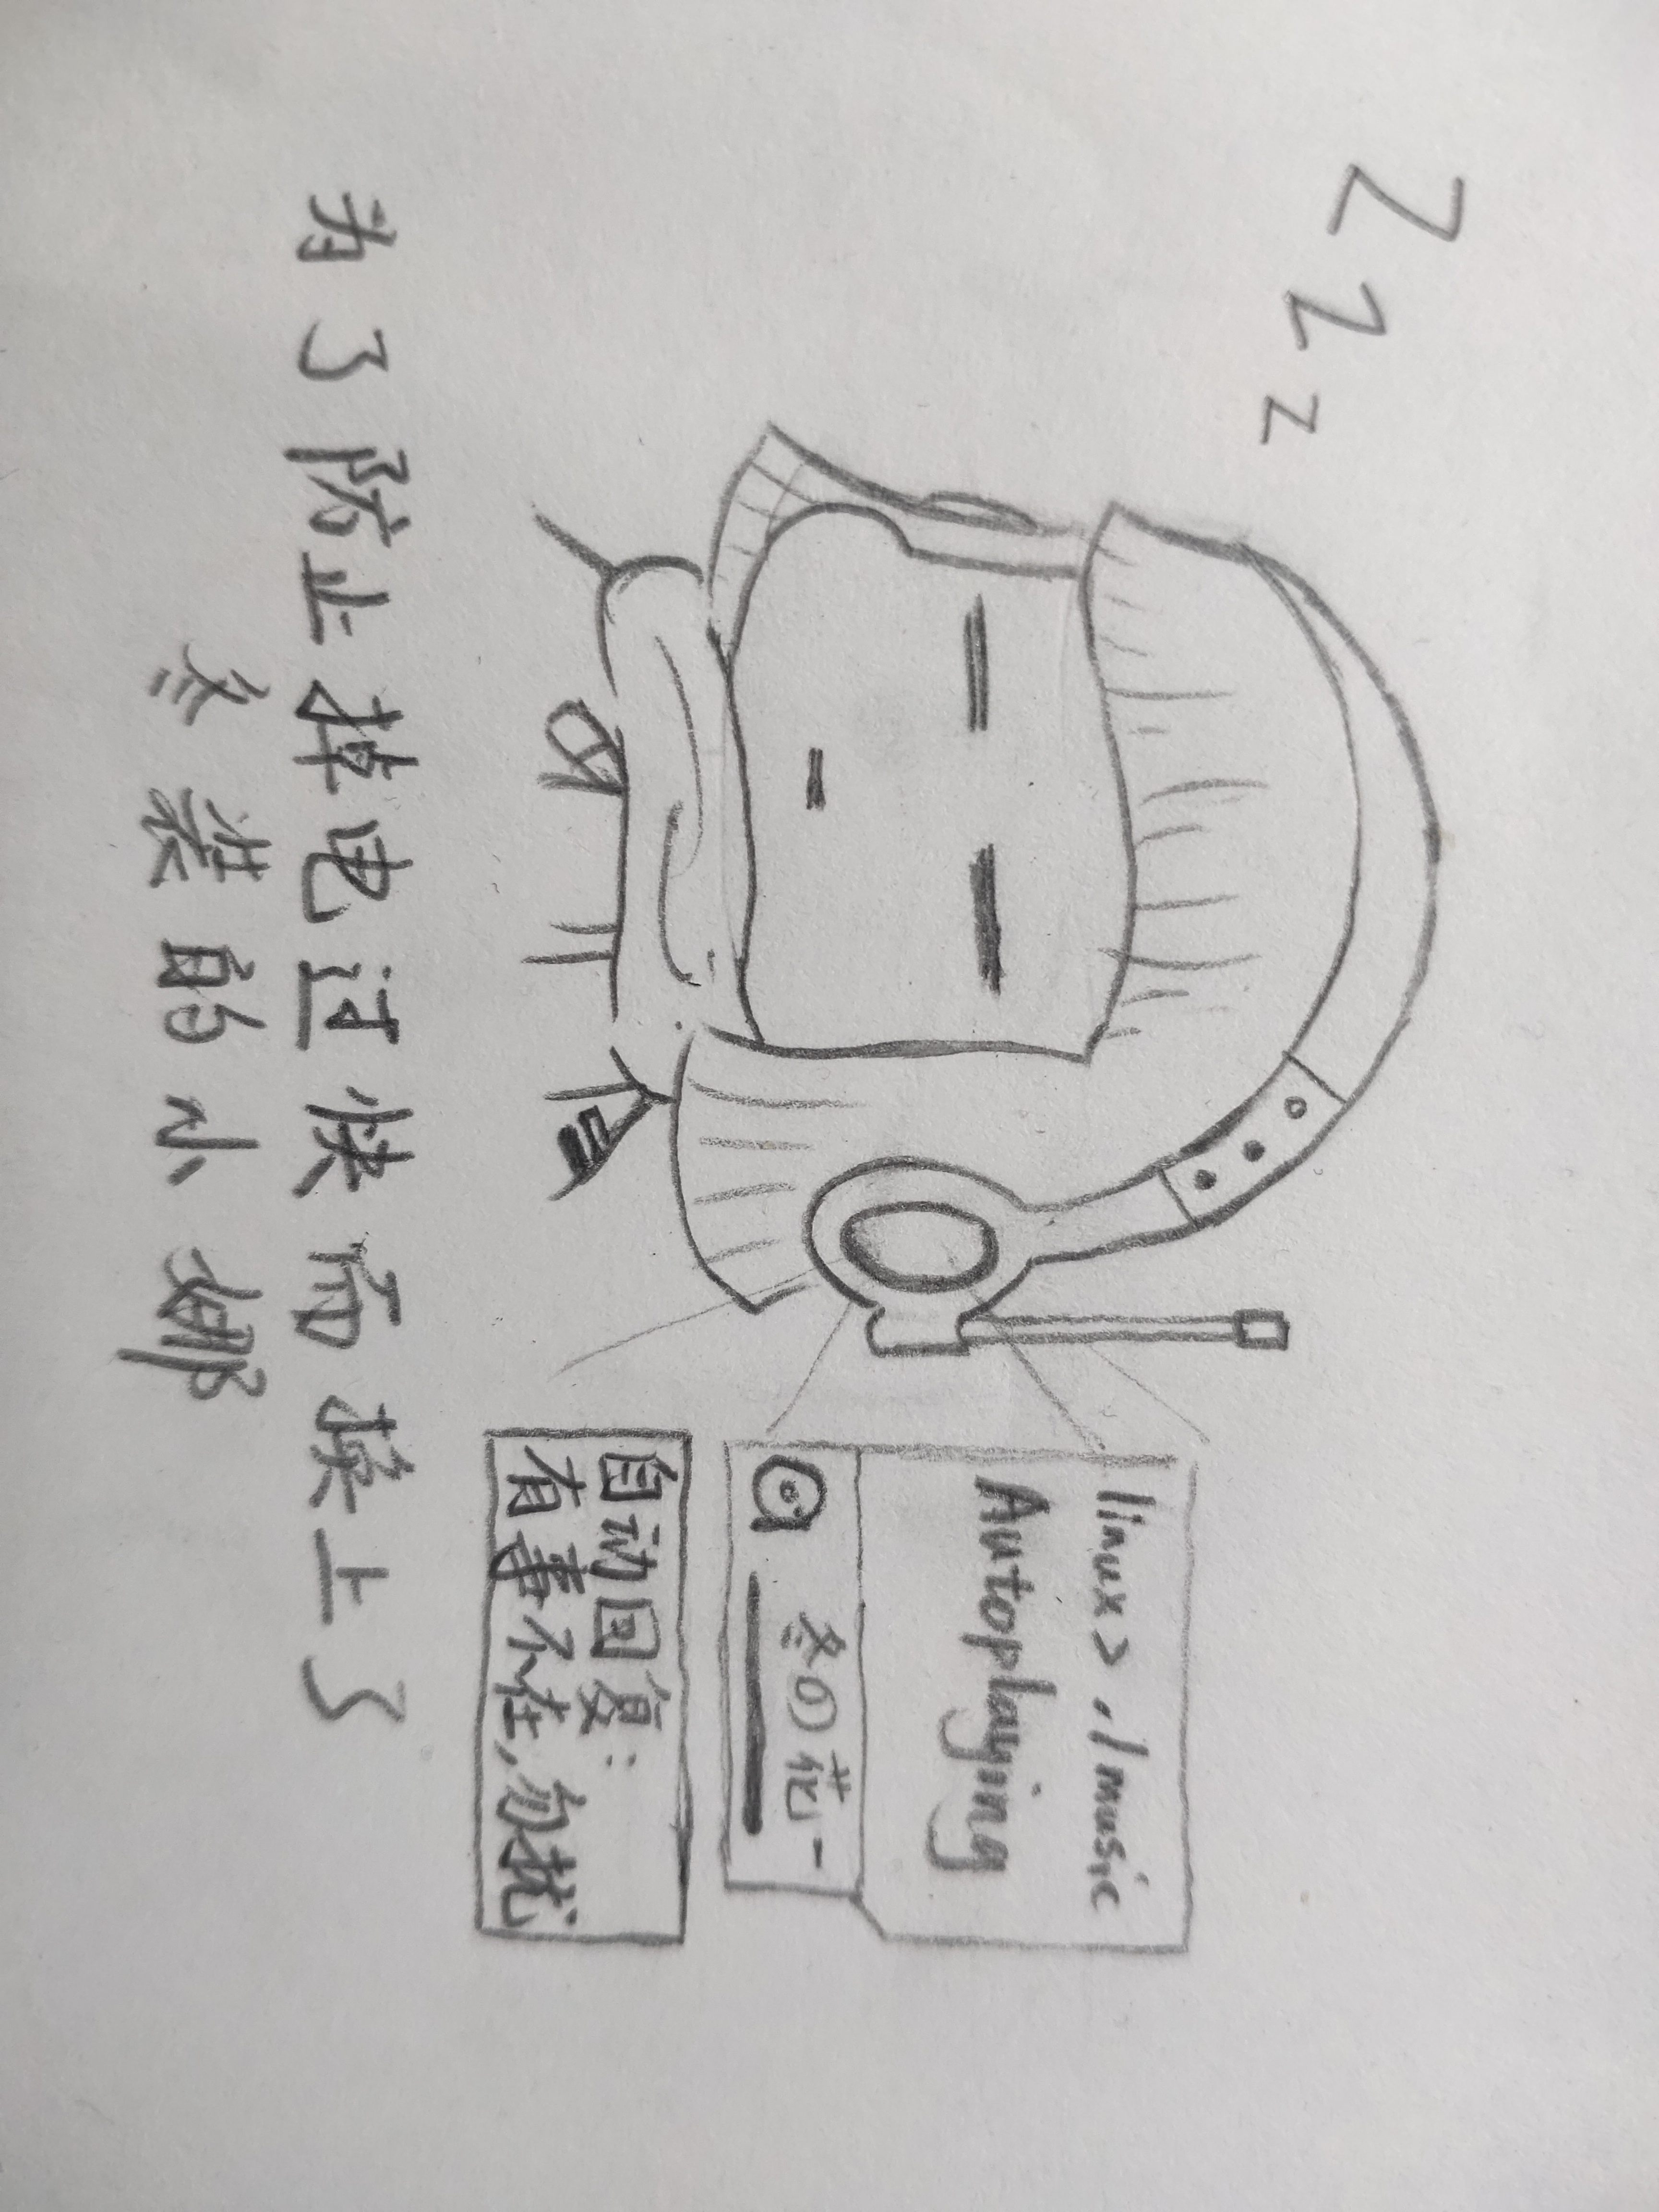 Z z z
linux> ./music
Autoplaying
冬の花-
自动回复:
有事不在,勿扰
为了防止掉电过快而换上了
冬装的小娜